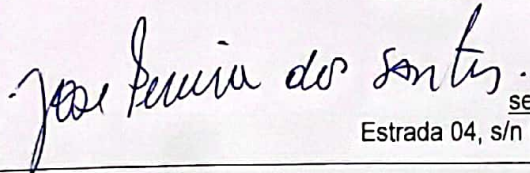 Jose Pereira dos Santos.
se
Estrada 04, s/n